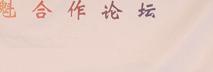 魁合作论坛